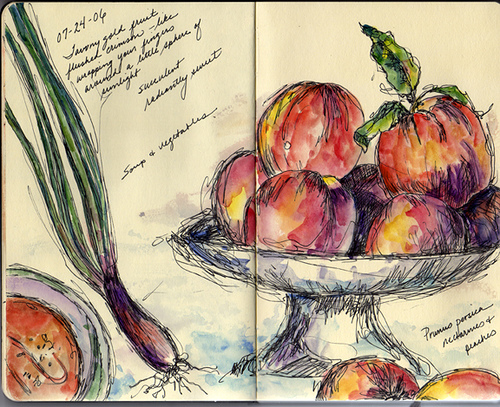 07-24-06
Tawny gold fruit
flushed crimson - like
wrapping your fingers
around a little sphere of
sunlight
succulent
radiantly sweet
Soup & vegetables.
Prunus persica
nectarines &
peaches